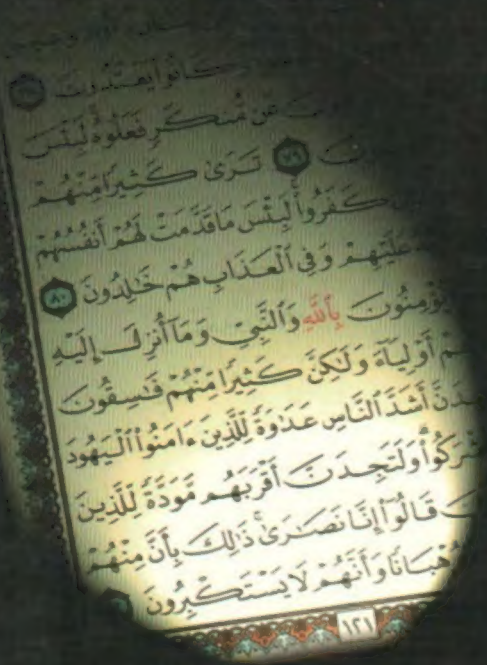 كَانُوا۟ يَعْتَدُونَ
عَن مُّنكَرٍ فَعَلُوهُ لَبِئْسَ
٧٩ تَرَىٰ كَثِيرًا مِّنْهُمْ
كَفَرُوا۟ لَبِئْسَ مَا قَدَّمَتْ لَهُمْ أَنفُسُهُمْ
عَلَيْهِمْ وَفِى ٱلْعَذَابِ هُمْ خَٰلِدُونَ ٨٠
يُؤْمِنُونَ بِٱللَّهِ وَٱلنَّبِىِّ وَمَآ أُنزِلَ إِلَيْهِ
أَوْلِيَآءَ وَلَٰكِنَّ كَثِيرًا مِّنْهُمْ فَٰسِقُونَ
أَشَدَّ ٱلنَّاسِ عَدَٰوَةً لِّلَّذِينَ ءَامَنُوا۟ ٱلْيَهُودَ
أَشْرَكُوا۟ وَلَتَجِدَنَّ أَقْرَبَهُم مَّوَدَّةً لِّلَّذِينَ
قَالُوٓا۟ إِنَّا نَصَٰرَىٰ ذَٰلِكَ بِأَنَّ مِنْهُمْ
وَرُهْبَانًا وَأَنَّهُمْ لَا يَسْتَكْبِرُونَ
١٢١